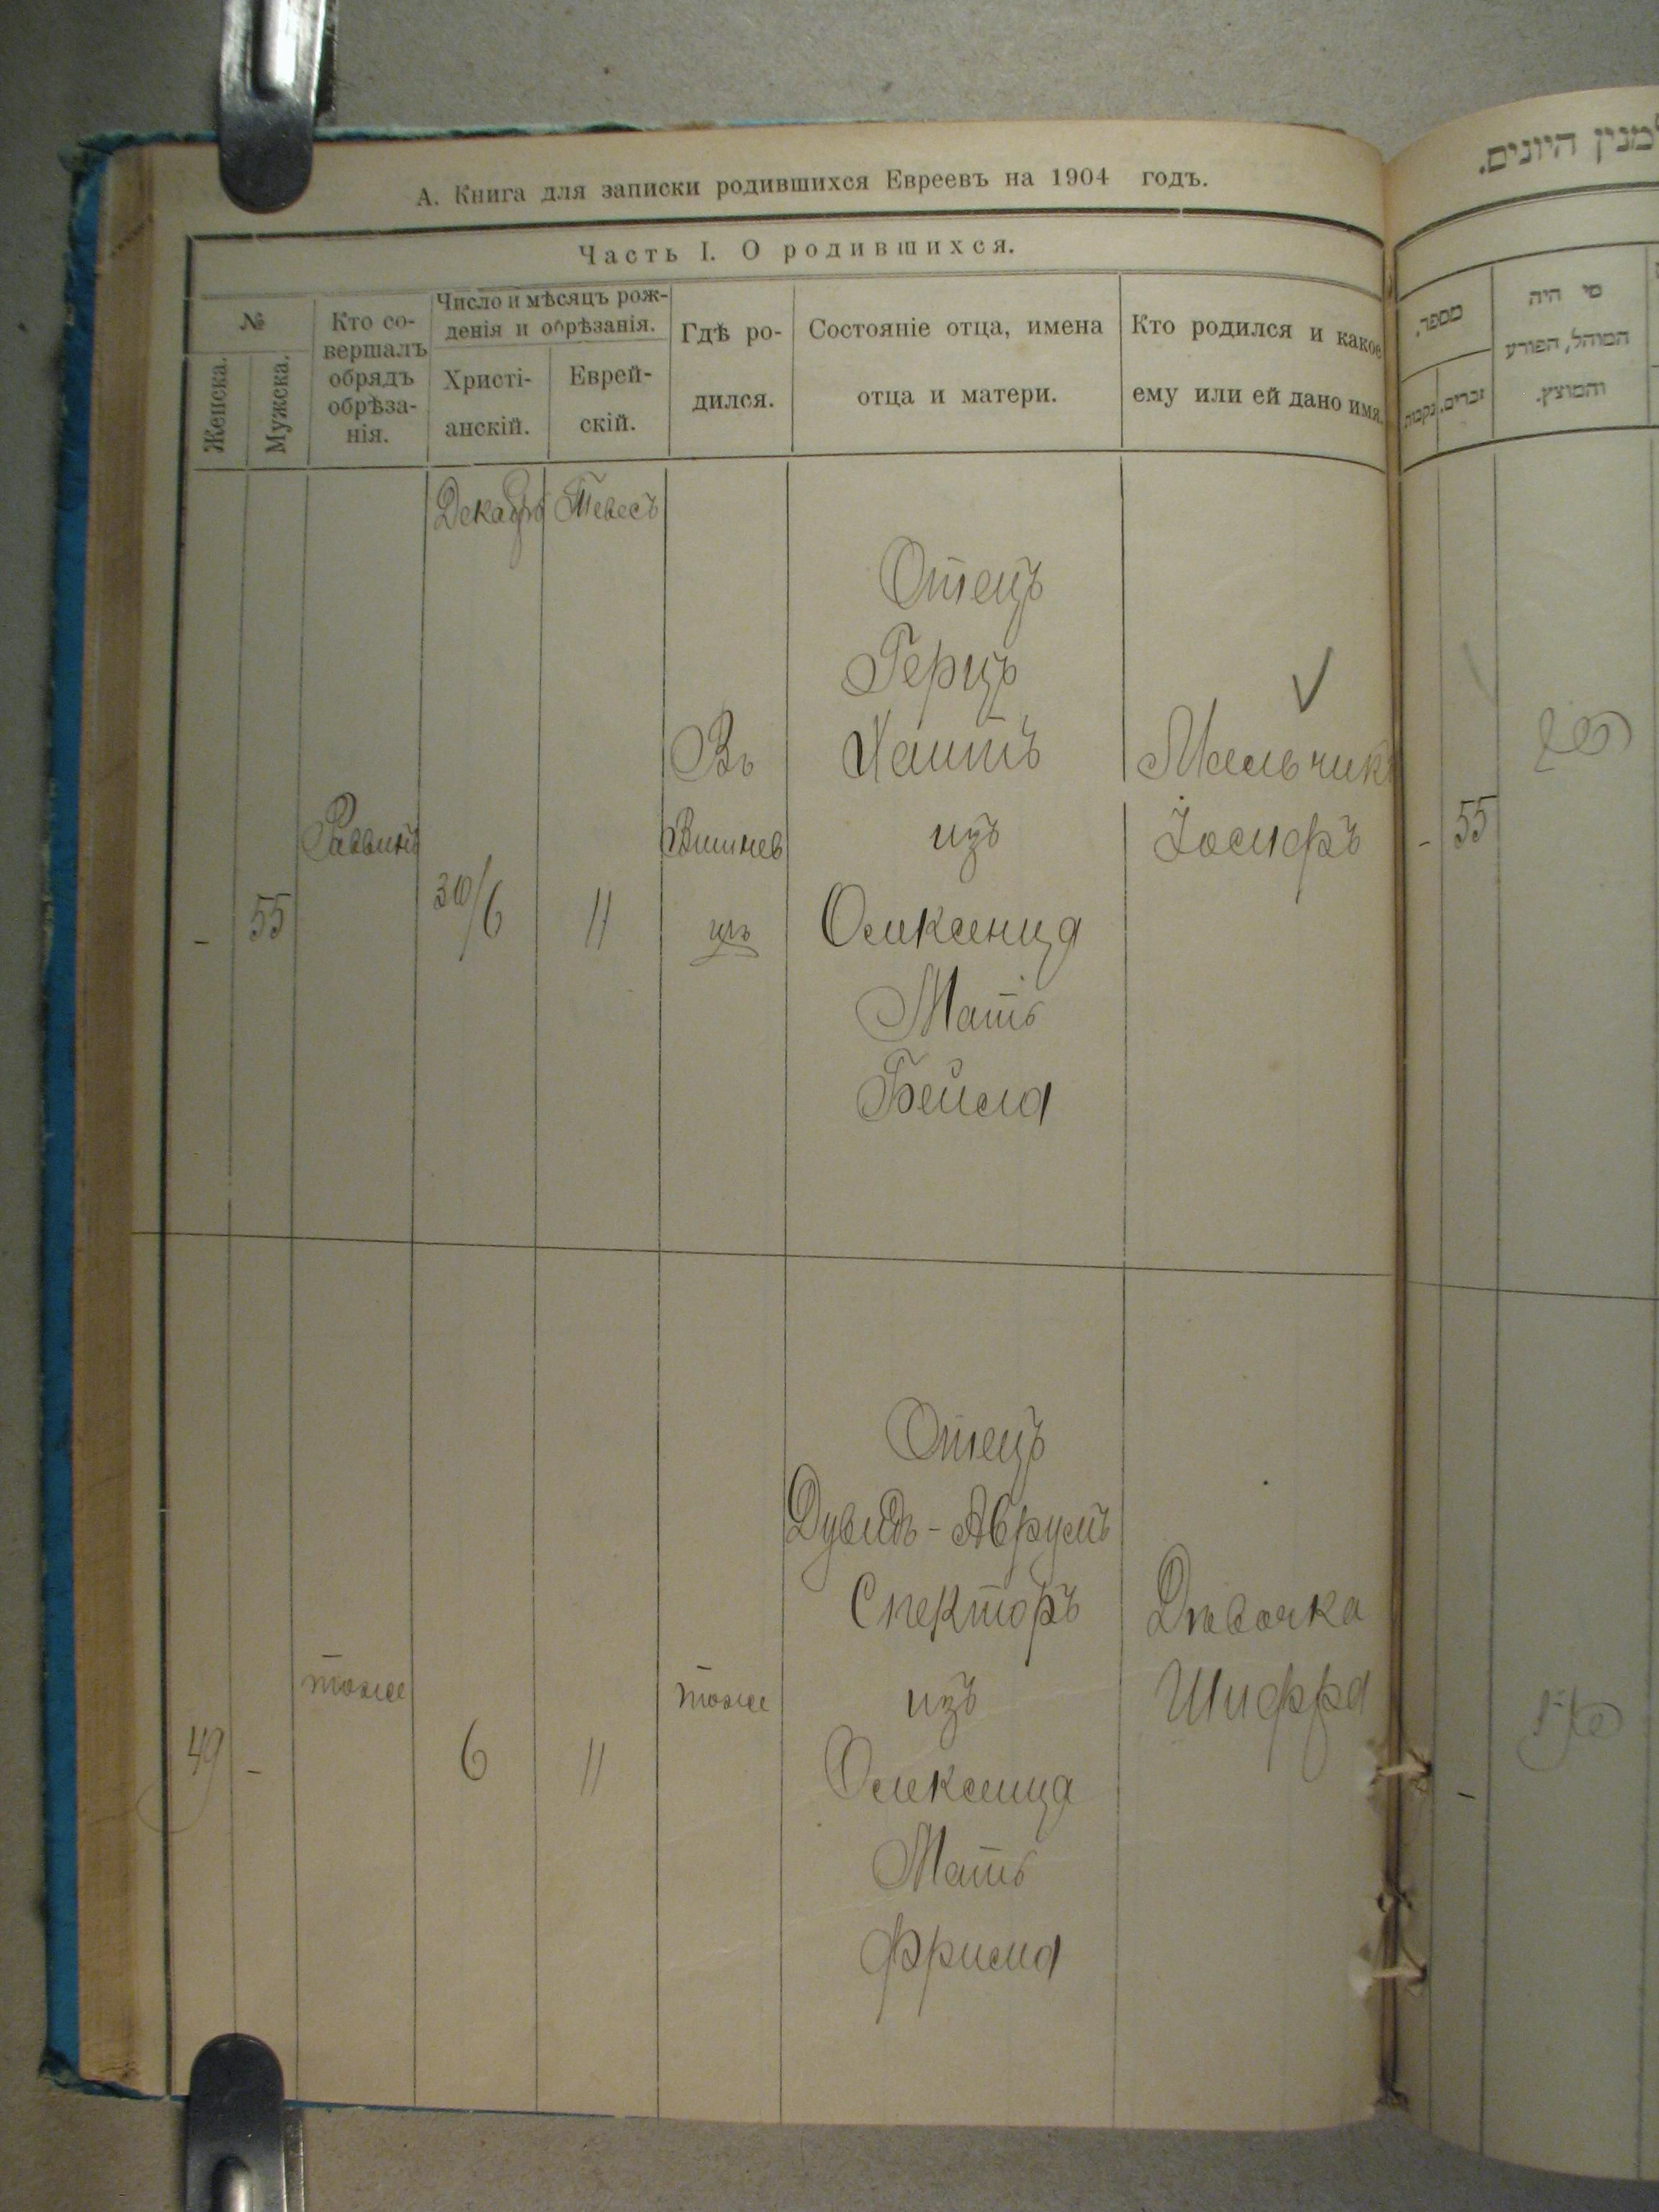 А. Книга для записки родившихся Евреевъ на 1904 годъ.
Часть I. О родившихся.
№
Женска.
Мужска.
Кто со-
вершалъ
обрядъ
обрѣза-
нія.
Число и мѣсяцъ рож-
денія и обрѣзанія.
Христі-
анскій.
Еврей-
скій.
Гдѣ ро-
дился.
Состояніе отца, имена
отца и матери.
Кто родился и какое
ему или ей дано имя.
Декабрь
Тевесъ
-
55
Раввинъ
30/6
11
Въ
Вишнев
цѣ
Отецъ
Герцъ
изъ
Олексенца
Мать
Бейла
Мальчикъ
Іосифъ
49
-
тоже
6
11
тоже
Отецъ
Дувидъ-Аврумъ
Спекторъ
изъ
Олексинца
Мать
Фрима
Дѣвочка
Шифра
למנין היונים.
מספר.
נקבות
זכרים.
מי היה
המוהל, הפורע
והמוצץ.
-
55
-